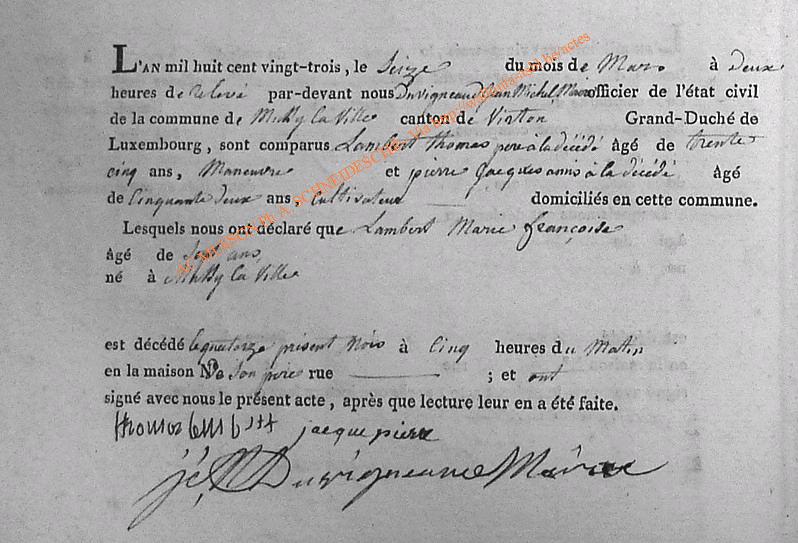 L'AN mil huit cent vingt-trois, le Seize du mois de Mars à deux
heures de Relevé par-devant nous Duvigneaud Jean Michel Maire officier de l'état civil
de la commune de la Ville canton de Virton Grand-Duché de
Luxembourg, sont comparus Lambert thomas pere à la décédé âgé de trente
cinq ans, Maneuvre et pierre Jacques amis à la décédé âgé
de Cinquante deux ans, Cultivateur domiciliés en cette commune.
Lesquels nous ont déclaré que Lambert Marie françoise
âgé de ans,
né à la Ville
est décédé le quatorze présent Mois à Cinq heures du Matin
en la maison De son pere rue ; et ont
signé avec nous le présent acte, après que lecture leur en a été faite.
jacque pierre